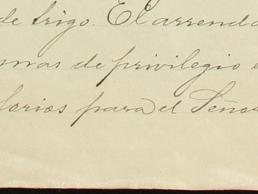 de trigo. El arrenda
mas de privilegio e
forios para el Seño